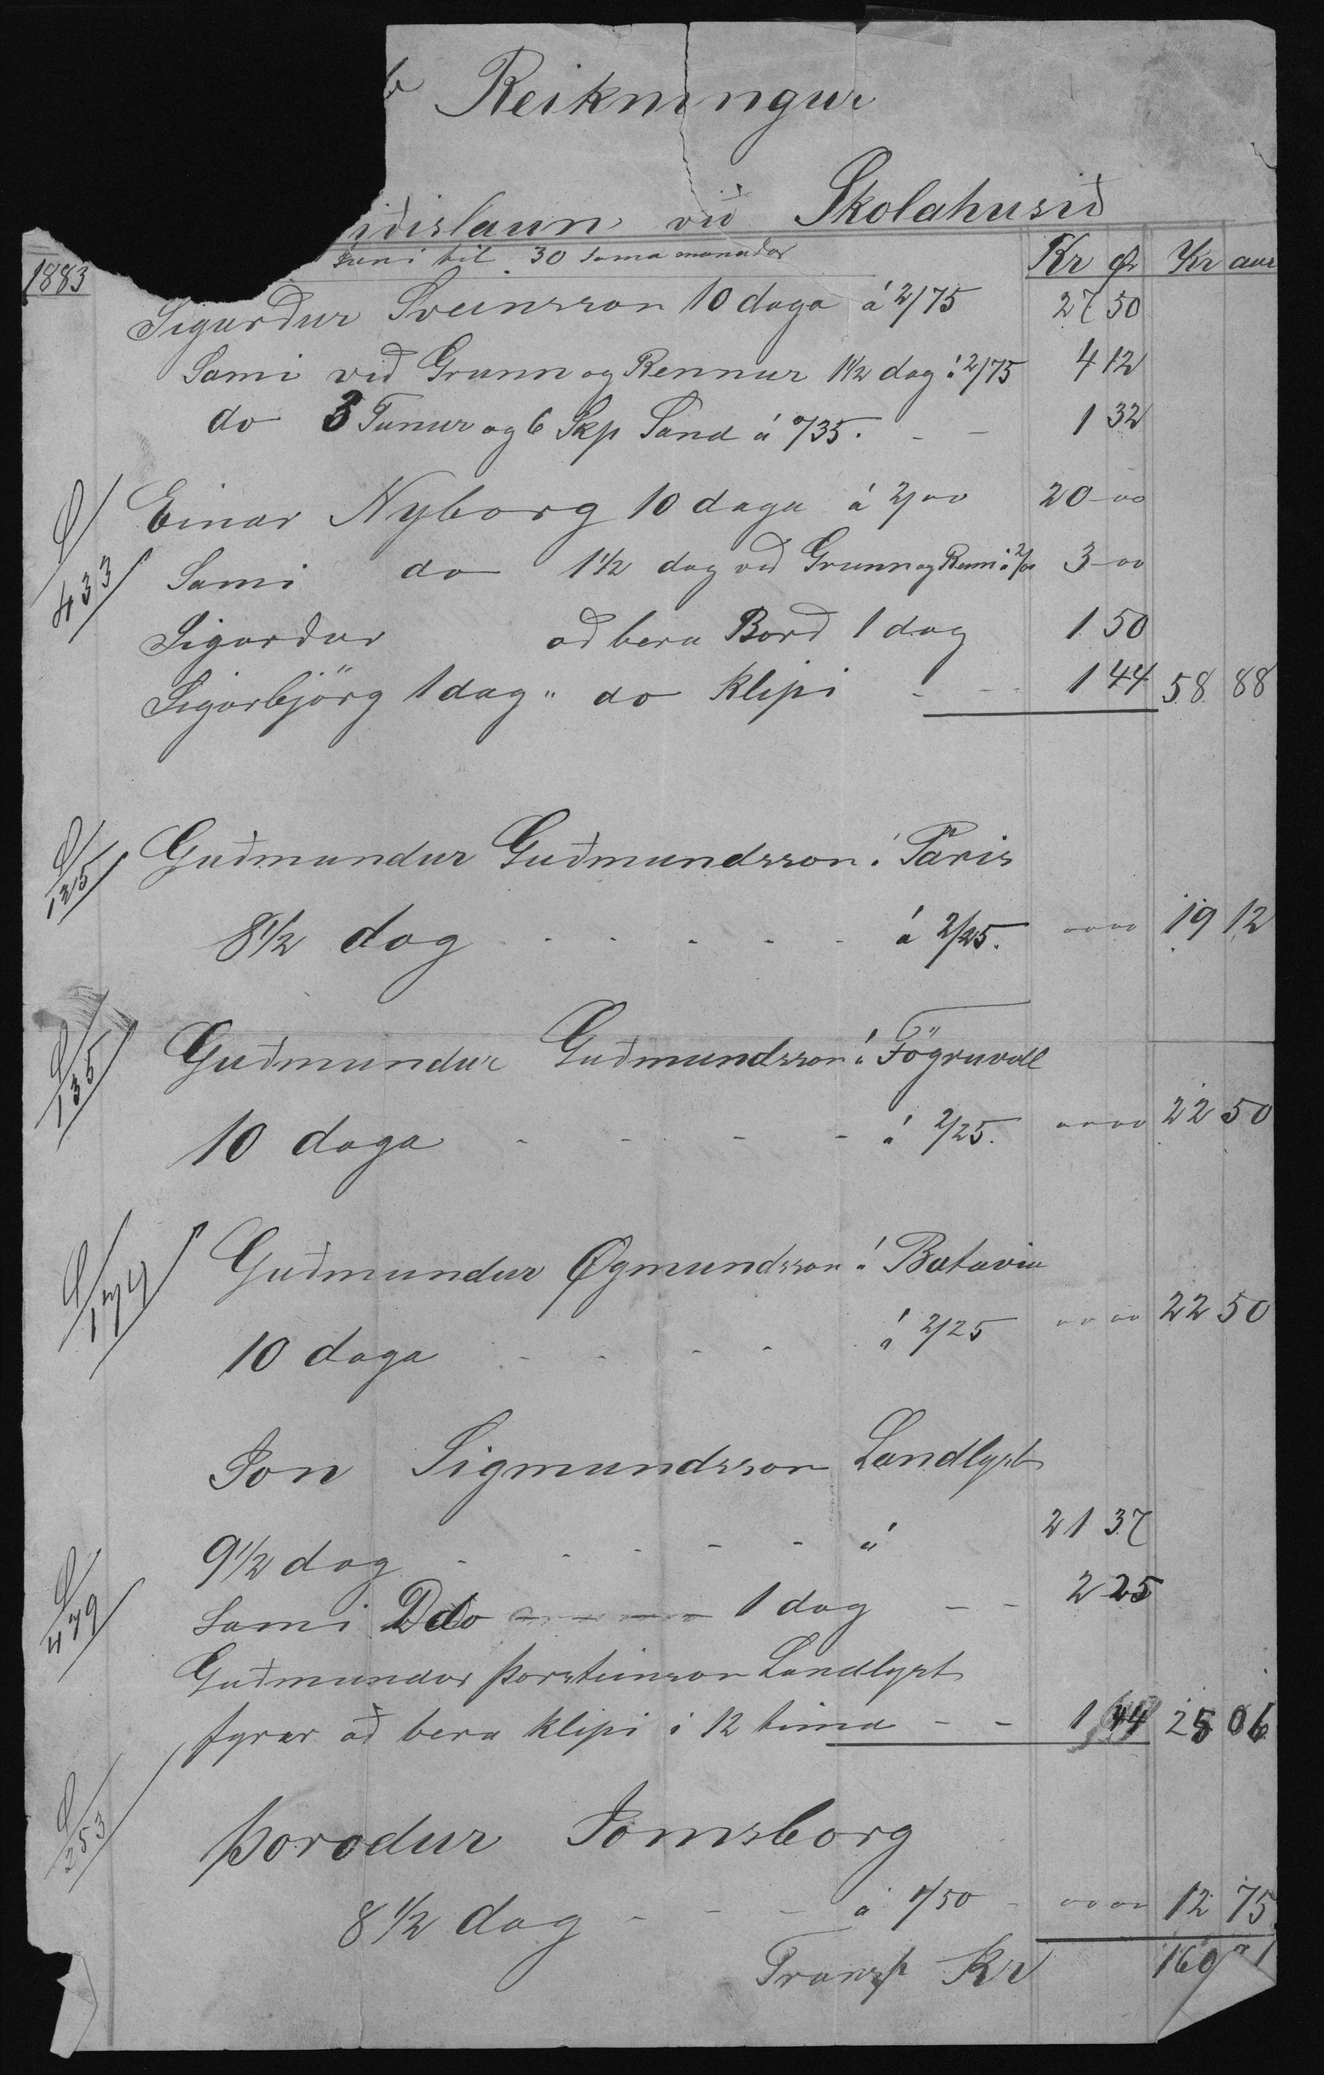 Reikningur
iðislaun við Skolahusið
1883 Juni til 30 sama manaðar Kr Ø Kr aur
Sigurður Sveinsson 10 daga á 2/75 27 50
Sami við Grunn og Rennur 1 1/2 dag á 2/75 4 12
do 3 Tunur og 6 Skp Sand á "/35. - - 1 32
Einar Nyborg 10 daga á 2/00 20 00
433
Sami do 1 1/2 dag við Grunn og Renn á 2/00 3 00
Sigurður að bera Borð 1 dag 1 50
Sigurbjörg 1 dag " do klipi - - 1 44 58 88
135
Guðmundur Guðmundsson í Paris
8 1/2 dag - - - - - á 2/25. 00 00 19 12
135
Guðmundur Guðmundsson á Fögruvell
10 daga - - - - á 2/25. 00 00 22 50
Guðmundur Øgmundsson á Batavia
10 daga - - - - á 2/25 00 00 22 50
Jon Sigmundsson Landlyst
9 1/2 dag - - - - - á 21 37
479
Sami Ddo - - - 1 dag - - 2 25
Guðmundur Þorsteinson Landlyst
fyrer að bera klipi í 12 tima - - 1 44 25 06
253
Þorodur Jomsborg
8 1/2 dag - - - á 1/50 - 00 00 12 75
Transp Kr 160 71